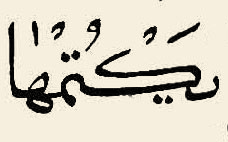 يَكْتُمْهَا